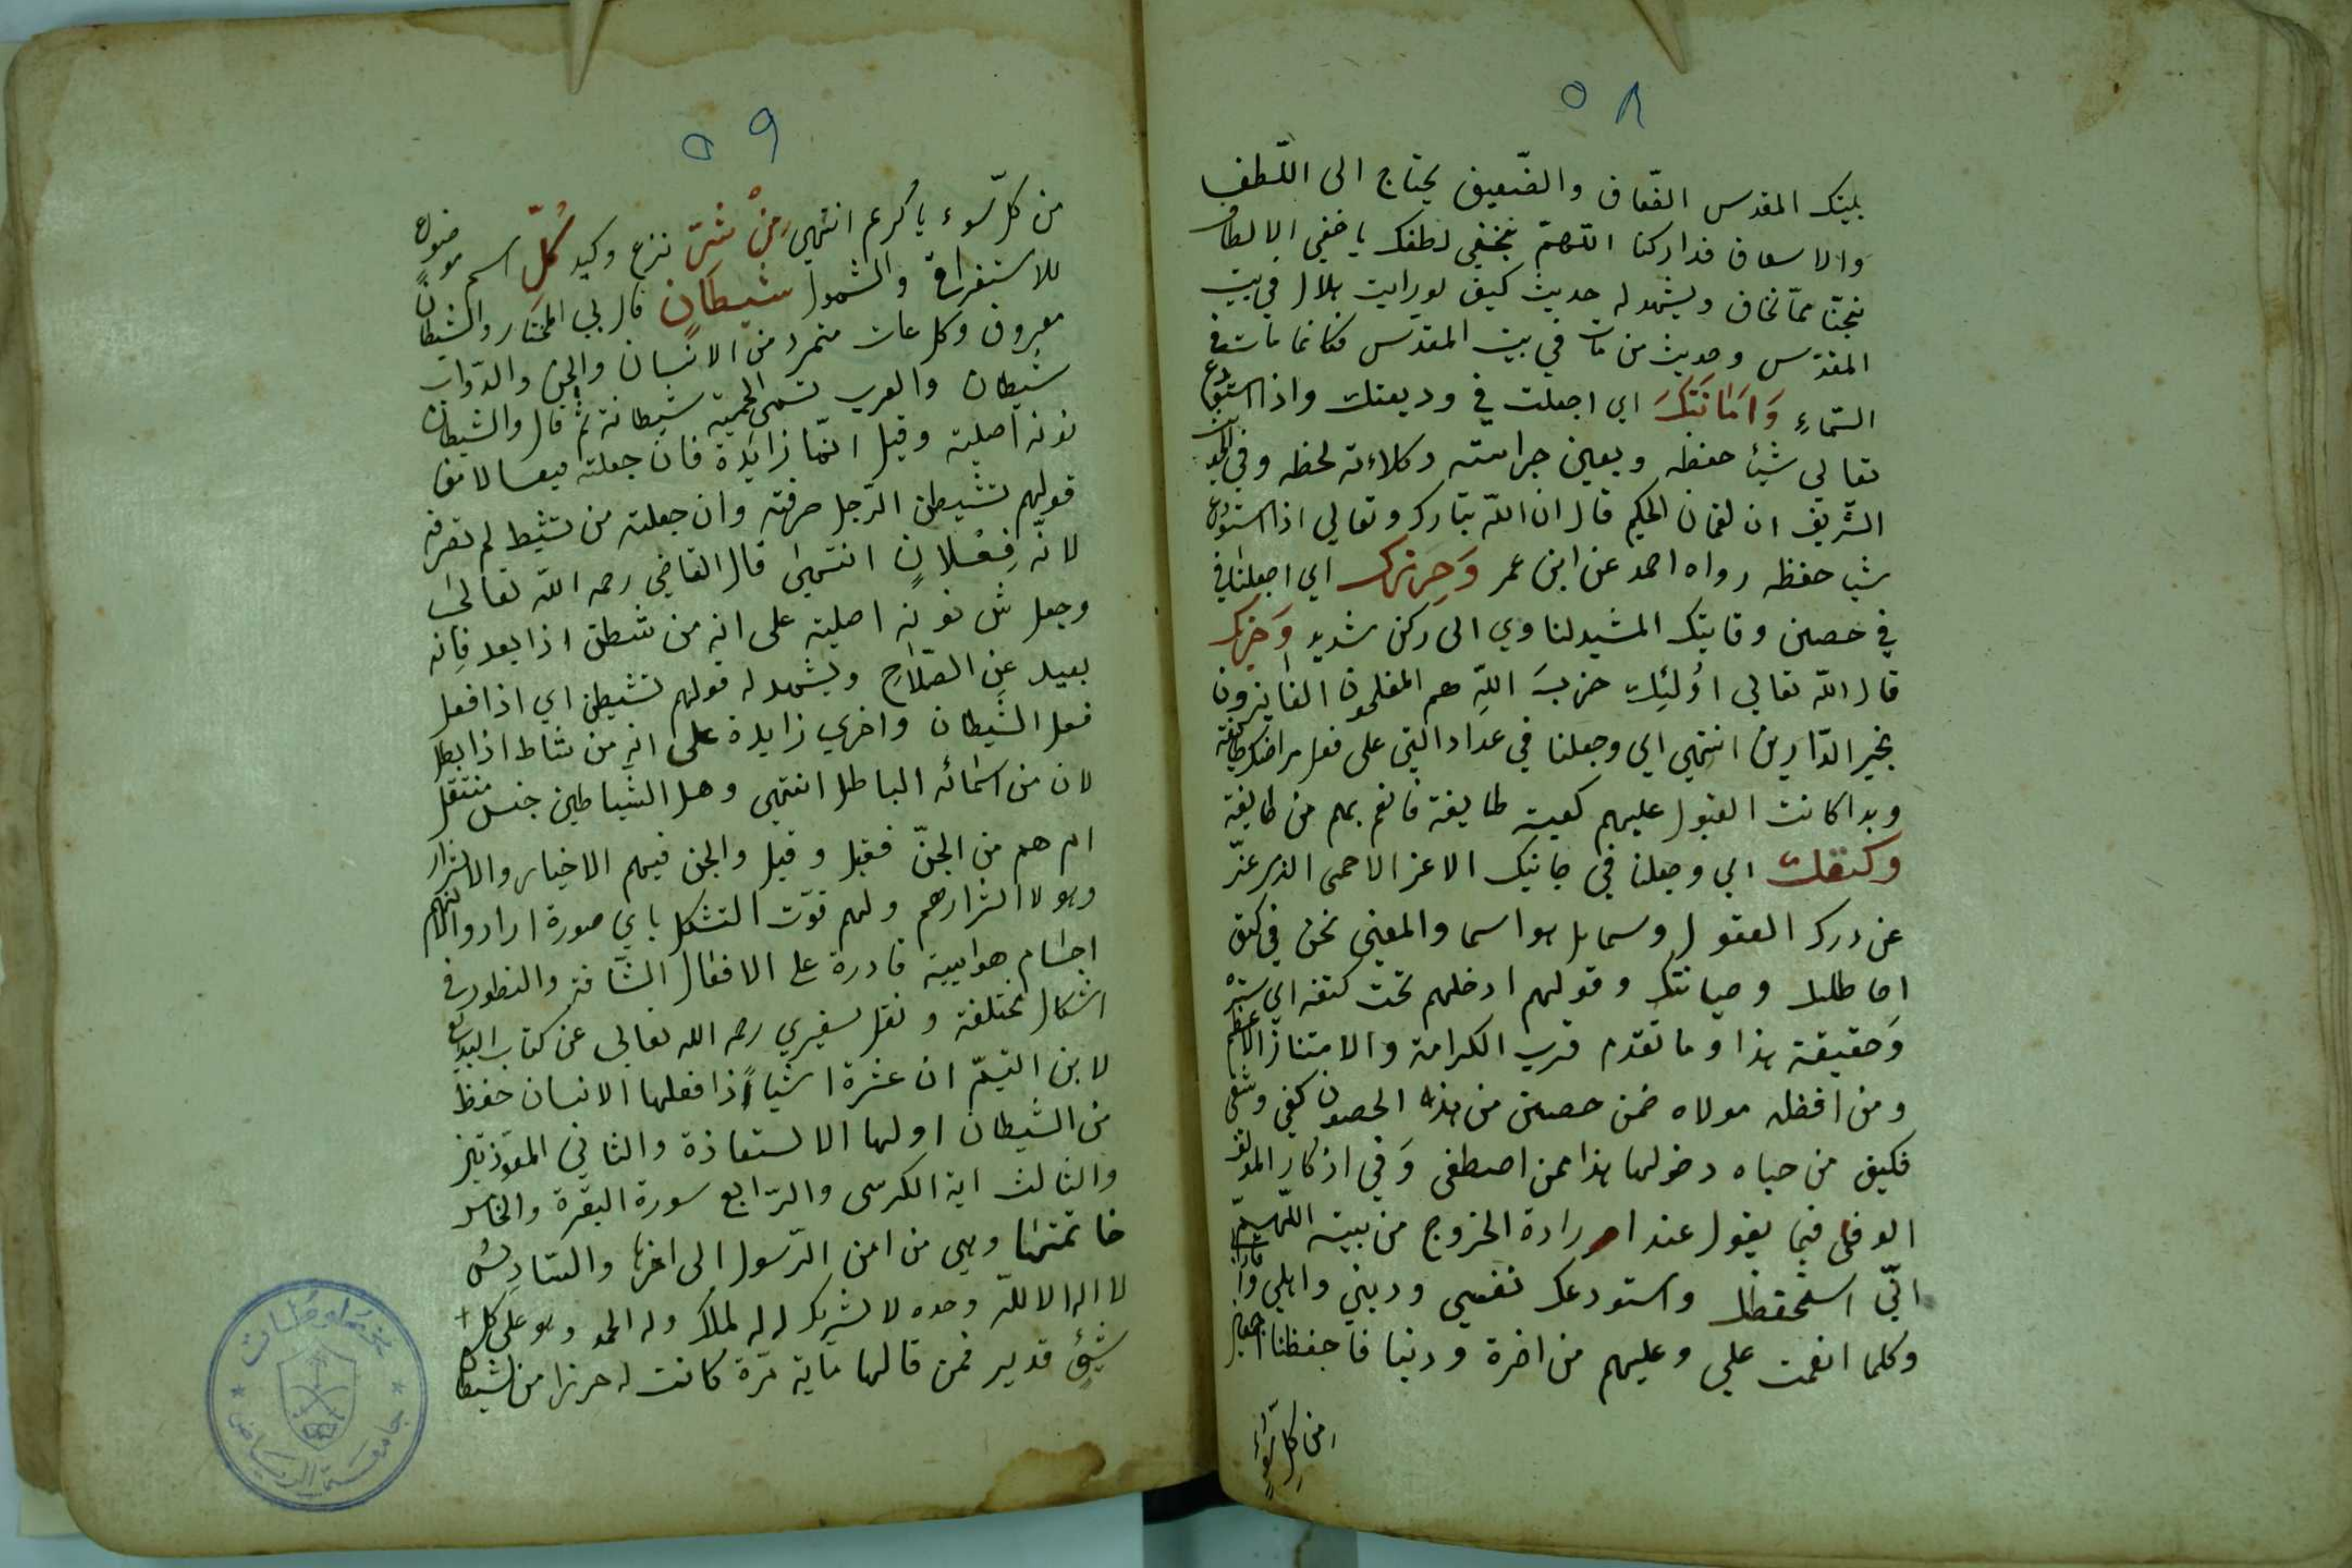 ٥٨
بليتك المقدس الضعاف والضعيف يحتاج الى اللطف
والاسعاف فداركنا اللهم بخفي لطفك يا خفي الالطاف
نجنا مما نخاف ويشهد له حديث كيف لو رايت بلال في بيت
المقدس وحديث من مات في بيت المقدس فكانما مات في
السماء وَاَمَانَتَكَ اي اجعلت في وديعتك واذا استودع
تعالى شيئ حفظه وبعين حراسته وكلاءته لحظه وفي
الشريف ان لقمان الحكيم قال ان الله تبارك وتعالى اذا استودع
شيا حفظه رواه احمد عن ابن عمر وَحِرزك اي اجعلنا في
في حصين وقايتك المشيد لناوي الى ركن شديد وَحزبك
قال الله تعالى اولئك حزب الله هم المفلحون الفايزون
بخير الدارين انتهى اي وجعلنا في عداد التي على فعل مراضيك
وبدا كانت القبول عليهم كعبت طايفة فانعم بهم من طايفة
وكنفك اي وجعلنا في جانبك الاعز الاحمى الذي عز
عن درك العقول وسما والمعنى نحن في كنف
وصيانتك وقولهم ادخلهم تحت كنفه اي ستره
وحقيقة هذا وما تقدم قرب الكرامة والامتناز
ومن افضله مولاه ضمن حصين من هذه الحصون كفي وشفي
فكيف من حباه دخولها هذا ممن اصطفى وفي اذكار
الوفى فيما يقول عند ارادة الخروج من بيته اللهم
اني استحفظك واستودعك نفسي وديني واهلي
وكلما انعمت علي وعليهم من اخرة ودنيا فاحفظنا
من كل سوء
٥٩
من كل سوء يا كريم انتهى مِنْ شَرّ نزع وكيد كُلّ اسم موضوع
للاستغراق والشمول شيطانٍ قال في المختار والشيطان
معروف وكل عات متمرد من الانسان والجن والدواب
شيطان والعرب تسمى الحية شيطانة ثم قال والشيطان
نونه اصلية وقيل انها زايدة فان جعلته فيعالا من
قولهم تشيطن الرجل صرفته وان جعلته من تشيط لم تصرفه
لانه فِعْلان انتهى قال القاضي رحمه الله تعالى
وجعل س نونه اصلية على انه من شطن اذا بعد فانه
بعيد عن الصلاح ويشهد له قولهم تشيطن اي اذا فعل
فعل الشيطان واخري زايدة على انه من شاط اذا بطل
لان من اسمائه الباطل انتهى وهل الشياطين جنس مستقل
ام هم من الجن فقيل وقيل والجن فيهم الاخيار والاشرار
وهولا اشرارهم ولهم قوت التشكل باي صورة ارادوا لانهم
اجسام هواييية قادرة على الافعال الشاقة والتطور في
اشكال مختلفة ونقل سفيري رحمه الله تعالى عن كتاب البدايع
لابن القيم ان عشرة اشياء اذا فعلها الانسان حفظ
من الشيطان اولها الاستعاذة والثاني المعوذتين
والثالث اية الكرسى والرابع سورة البقرة والخامس
خاتمتها وهي من امن الرسول الى اخرها والسادس
لا اله الا الله وحده لا شريك له له الملك وله الحمد وهو على كل
شيئ قدير فمن قالها ماية مرة كانت له حرزا من الشيطان
جامعة الرياض